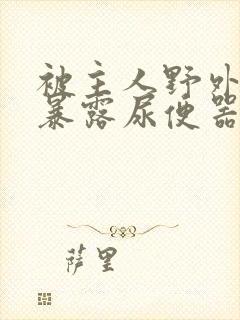 被主人野外
暴露尿便器
萨里